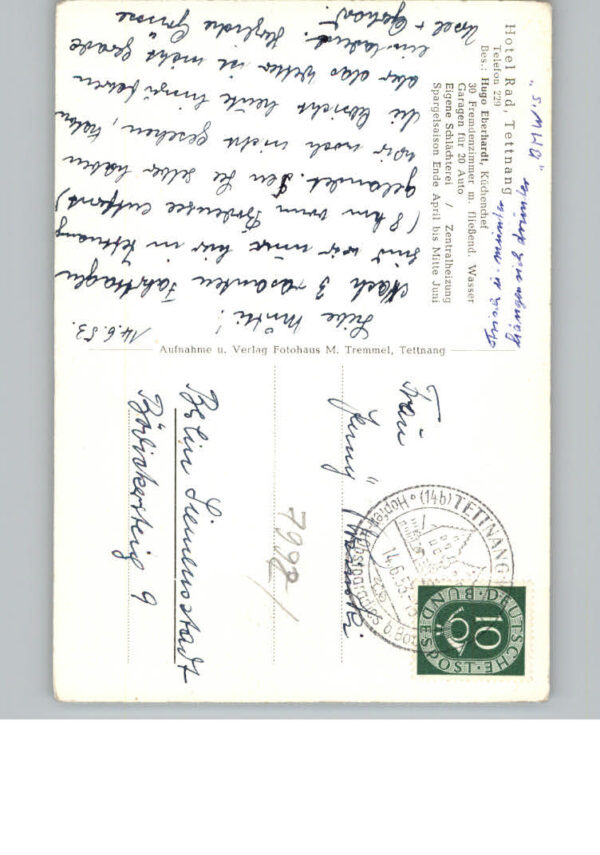 Hotel Rad, Tettnang
Telefon 229
Bes.: Hugo Eberhardt, Küchenchef
30 Fremdenzimmer m. fließend. Wasser
Garagen für 20 Auto
Eigene Schlächterei / Zentralheizung
Spargelsaison Ende April bis Mitte Juni
14.6.53.
Liebe Mutti!
Nach 3 rasanten Fahrttagen
sind wir nun hier in Tettnang
(8 km vom Bodensee entfernt)
gelandet. Den See selber haben
wir noch nicht gesehen,
die Absicht heute hinzufahren
aber das Wetter ist nicht gerade
einladend. Herzliche Grüsse
+ Gerhard
Aufnahme u. Verlag Fotohaus M. Tremmel, Tettnang
Frau
Jenny
Berlin Siemensstadt
9
7992/
(14b) TETTNANG
14.6.53
Hopfen
DEUTSCHE
BUNDESPOST
10